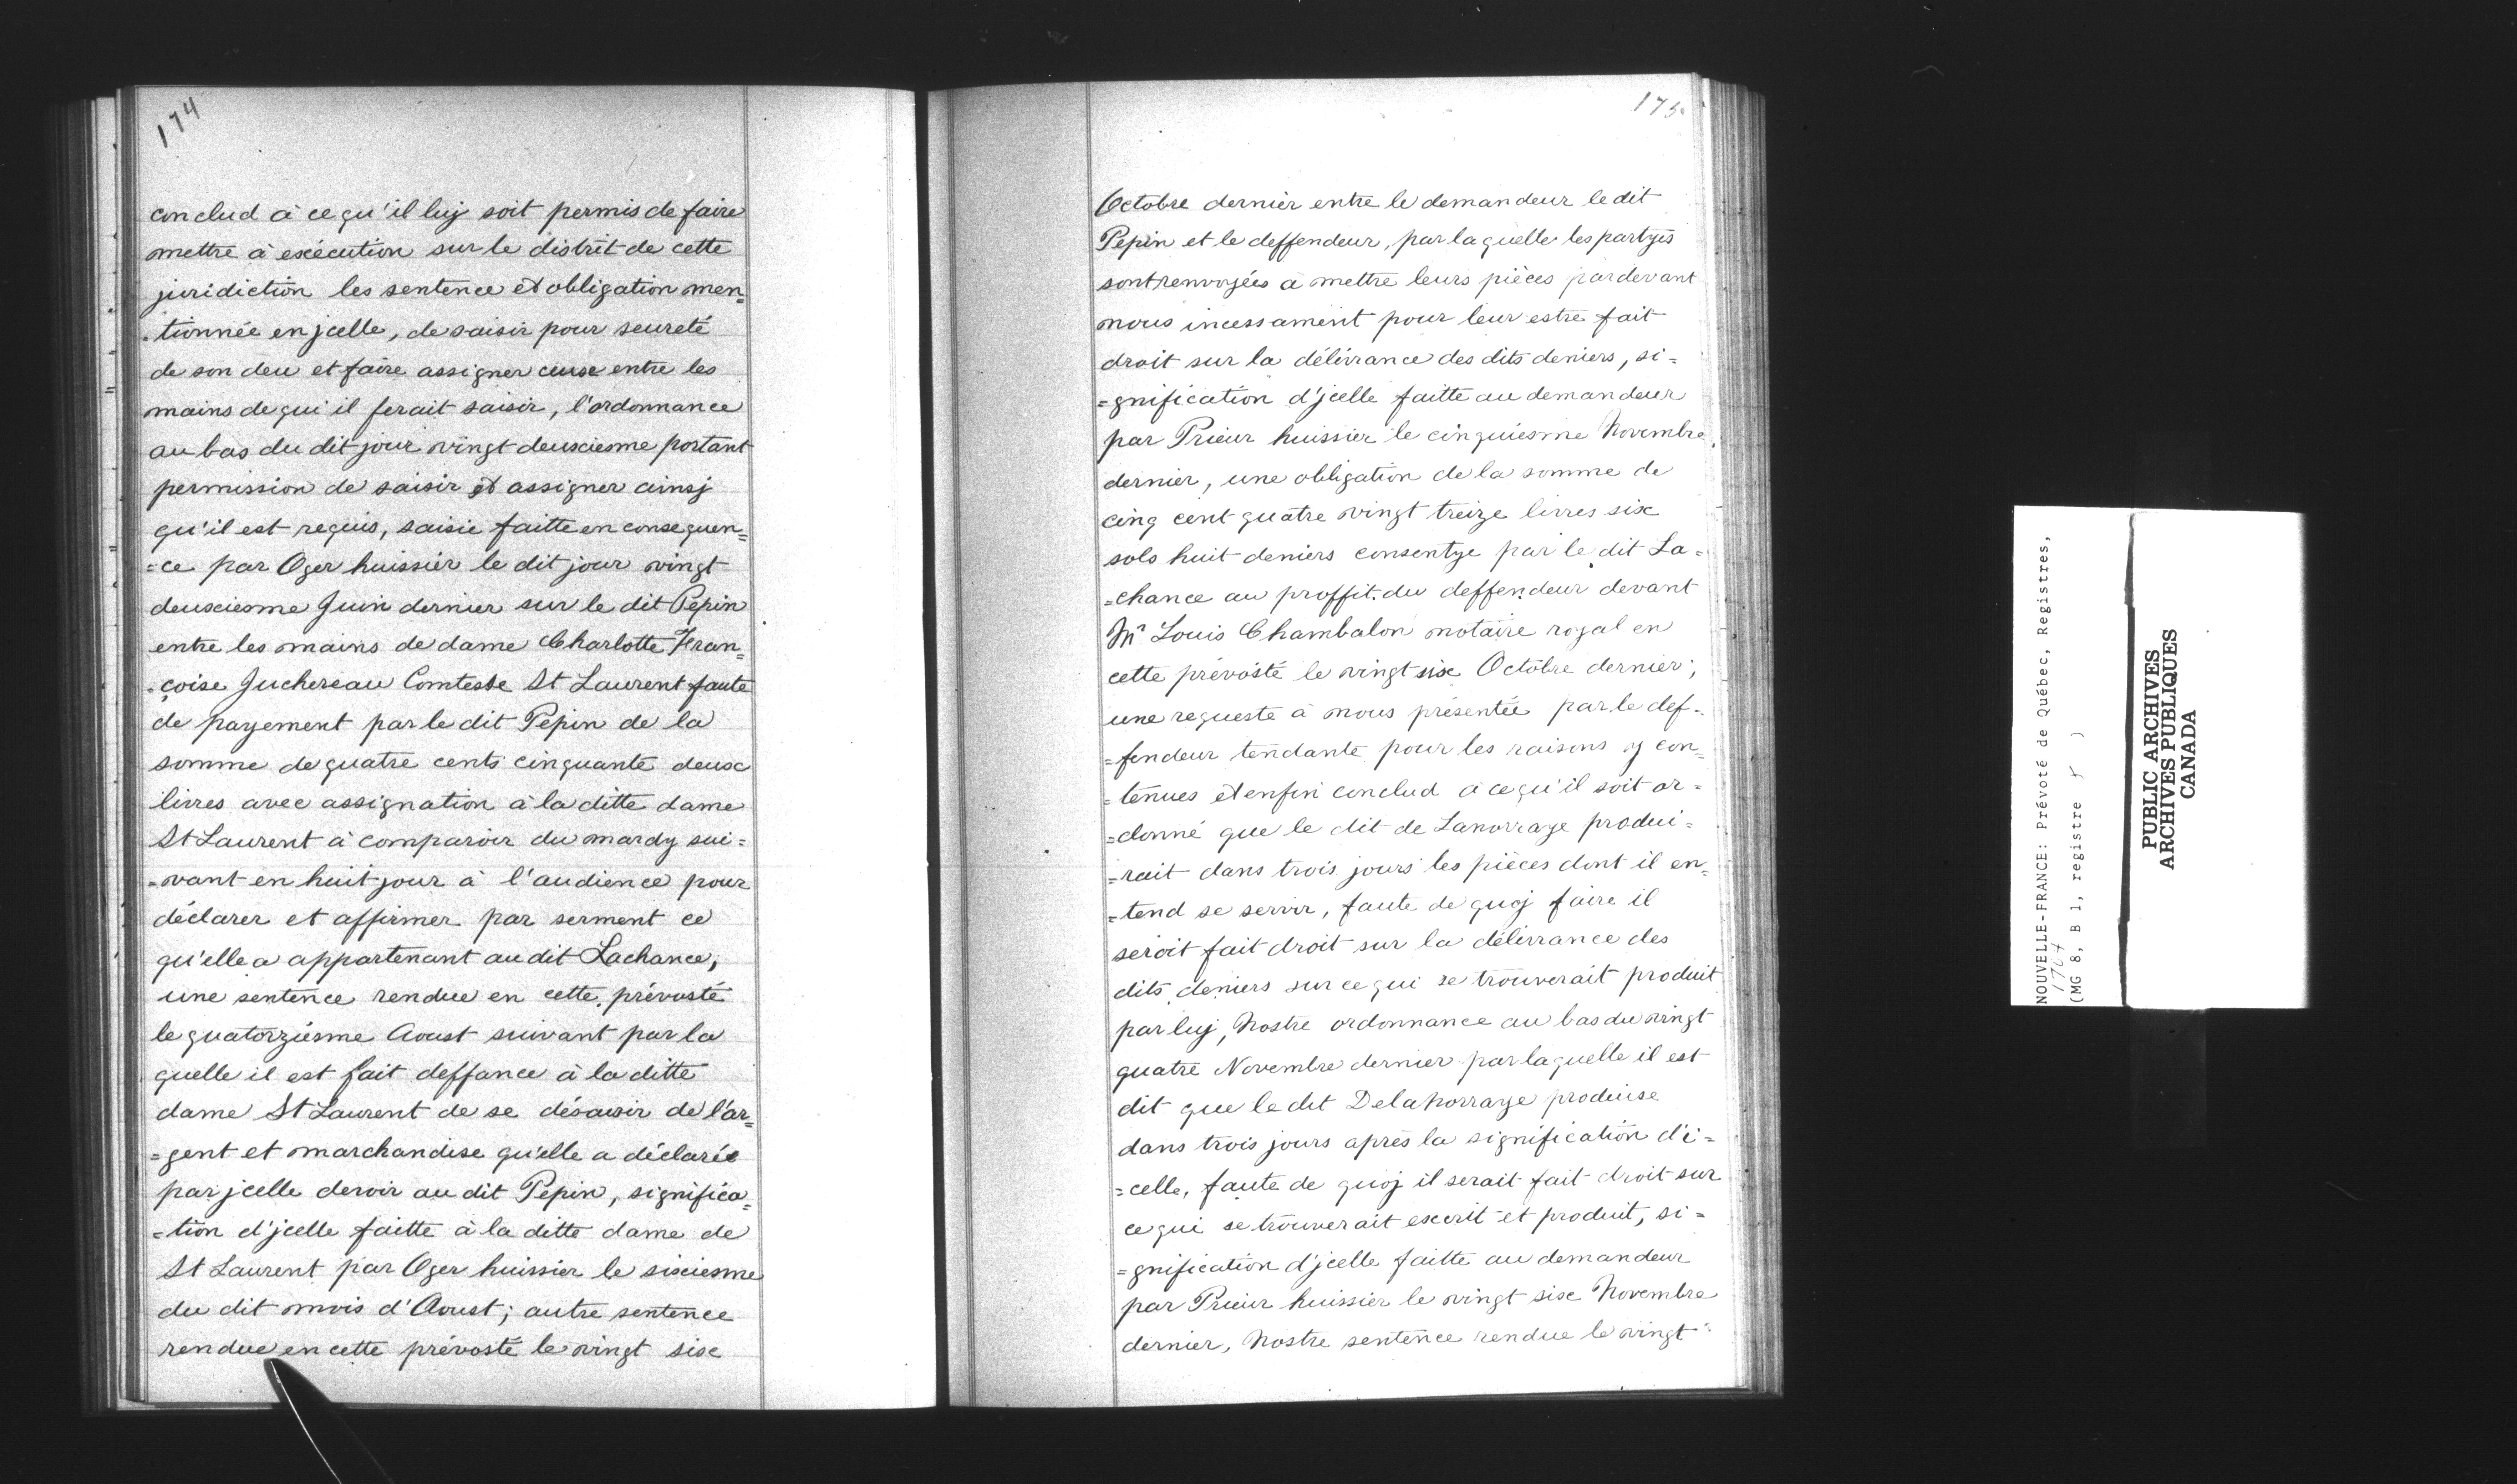 174
conclud à ce qu'il luj soit permis de faire
mettre à exécution sur le distrit de cette
juridiction les sentence et obligation men=
=tionnée en jcelle, de saisir pour seureté
de son deu et faire assigner ceux entre les
mains de qui il ferait saisir, l'ordonnance
au bas du dit jour vingt deuxiesme portant
permission de saisir et assigner ainsj
qu'il est requis, saisie faitte en consequen=
=ce par Oger huissier le dit jour vingt
deuxiesme Juin dernier sur le dit Pepin
entre les mains de dame Charlotte Fran=
=çoise Juchereau Comtesse St Laurent faute
de payement par le dit Pepin de la
somme de quatre cents cinquante deux
livres avec assignation à la ditte dame
St Laurent à comparoir du mardy sui=
=vant en huit jour à l'audience pour
déclarer et affirmer par serment ce
qu'elle a appartenant au dit Lachance,
une sentence rendue en cette prévosté
le quatorziésme Aoust suivant par la
quelle il est fait deffance à la ditte
dame St Laurent de se désaisir de l'ar=
=gent et marchandise qu'elle a déclarée
par jcelle devoir au dit Pepin, significa=
=tion d'jcelle faitte à la ditte dame de
St Laurent par Oger huissier le sixiesme
du dit mois d'Aoust; autre sentence
rendue en cette prévosté le vingt six
175
Octobre dernier entre le demandeur le dit
Pepin et le deffendeur, par laquelle les partyes
sont renvoyées à mettre leurs pièces pardevant
nous incessament pour leur estre fait
droit sur la délivrance des dits deniers, si=
=gnification d'jcelle faitte au demandeur
par Prieur huissier le cinquiesme Novembre
dernier, une obligation de la somme de
cinq cent quatre vingt treize livres six
sols huit deniers consentye par le dit La=
=chance au proffit du deffendeur devant
Mr Louis Chambalon notaire royal en
cette prévosté le vingt six Octobre dernier;
une requeste à nous présentée par le def=
=fendeur tendante pour les raisons y con=
=tenues et enfin conclud à ce qu'il soit or=
=donné que le dit de Lanorraye produi=
=rait dans trois jours les pièces dont il en=
=tend se servir, faute de quoj faire il
seroit fait droit sur la délivrance des
dits deniers sur ce qui se trouverait produit
par luj, Nostre ordonnance au bas du vingt
quatre Novembre dernier par laquelle il est
dit que le dit Delanorraye produise
dans trois jours après la signification d'i=
=celle, faute de quoj il serait fait droit sur
ce qui se trouverait escrit et produit, si=
=gnification d'jcelle faitte au demandeur
par Prieur huissier le vingt six Novembre
dernier, Nostre sentence rendue le vingt
NOUVELLE-FRANCE: Prévoté de Québec, Registres,
1707
(MG 8, B 1, registre )
PUBLIC ARCHIVES
ARCHIVES PUBLIQUES
CANADA